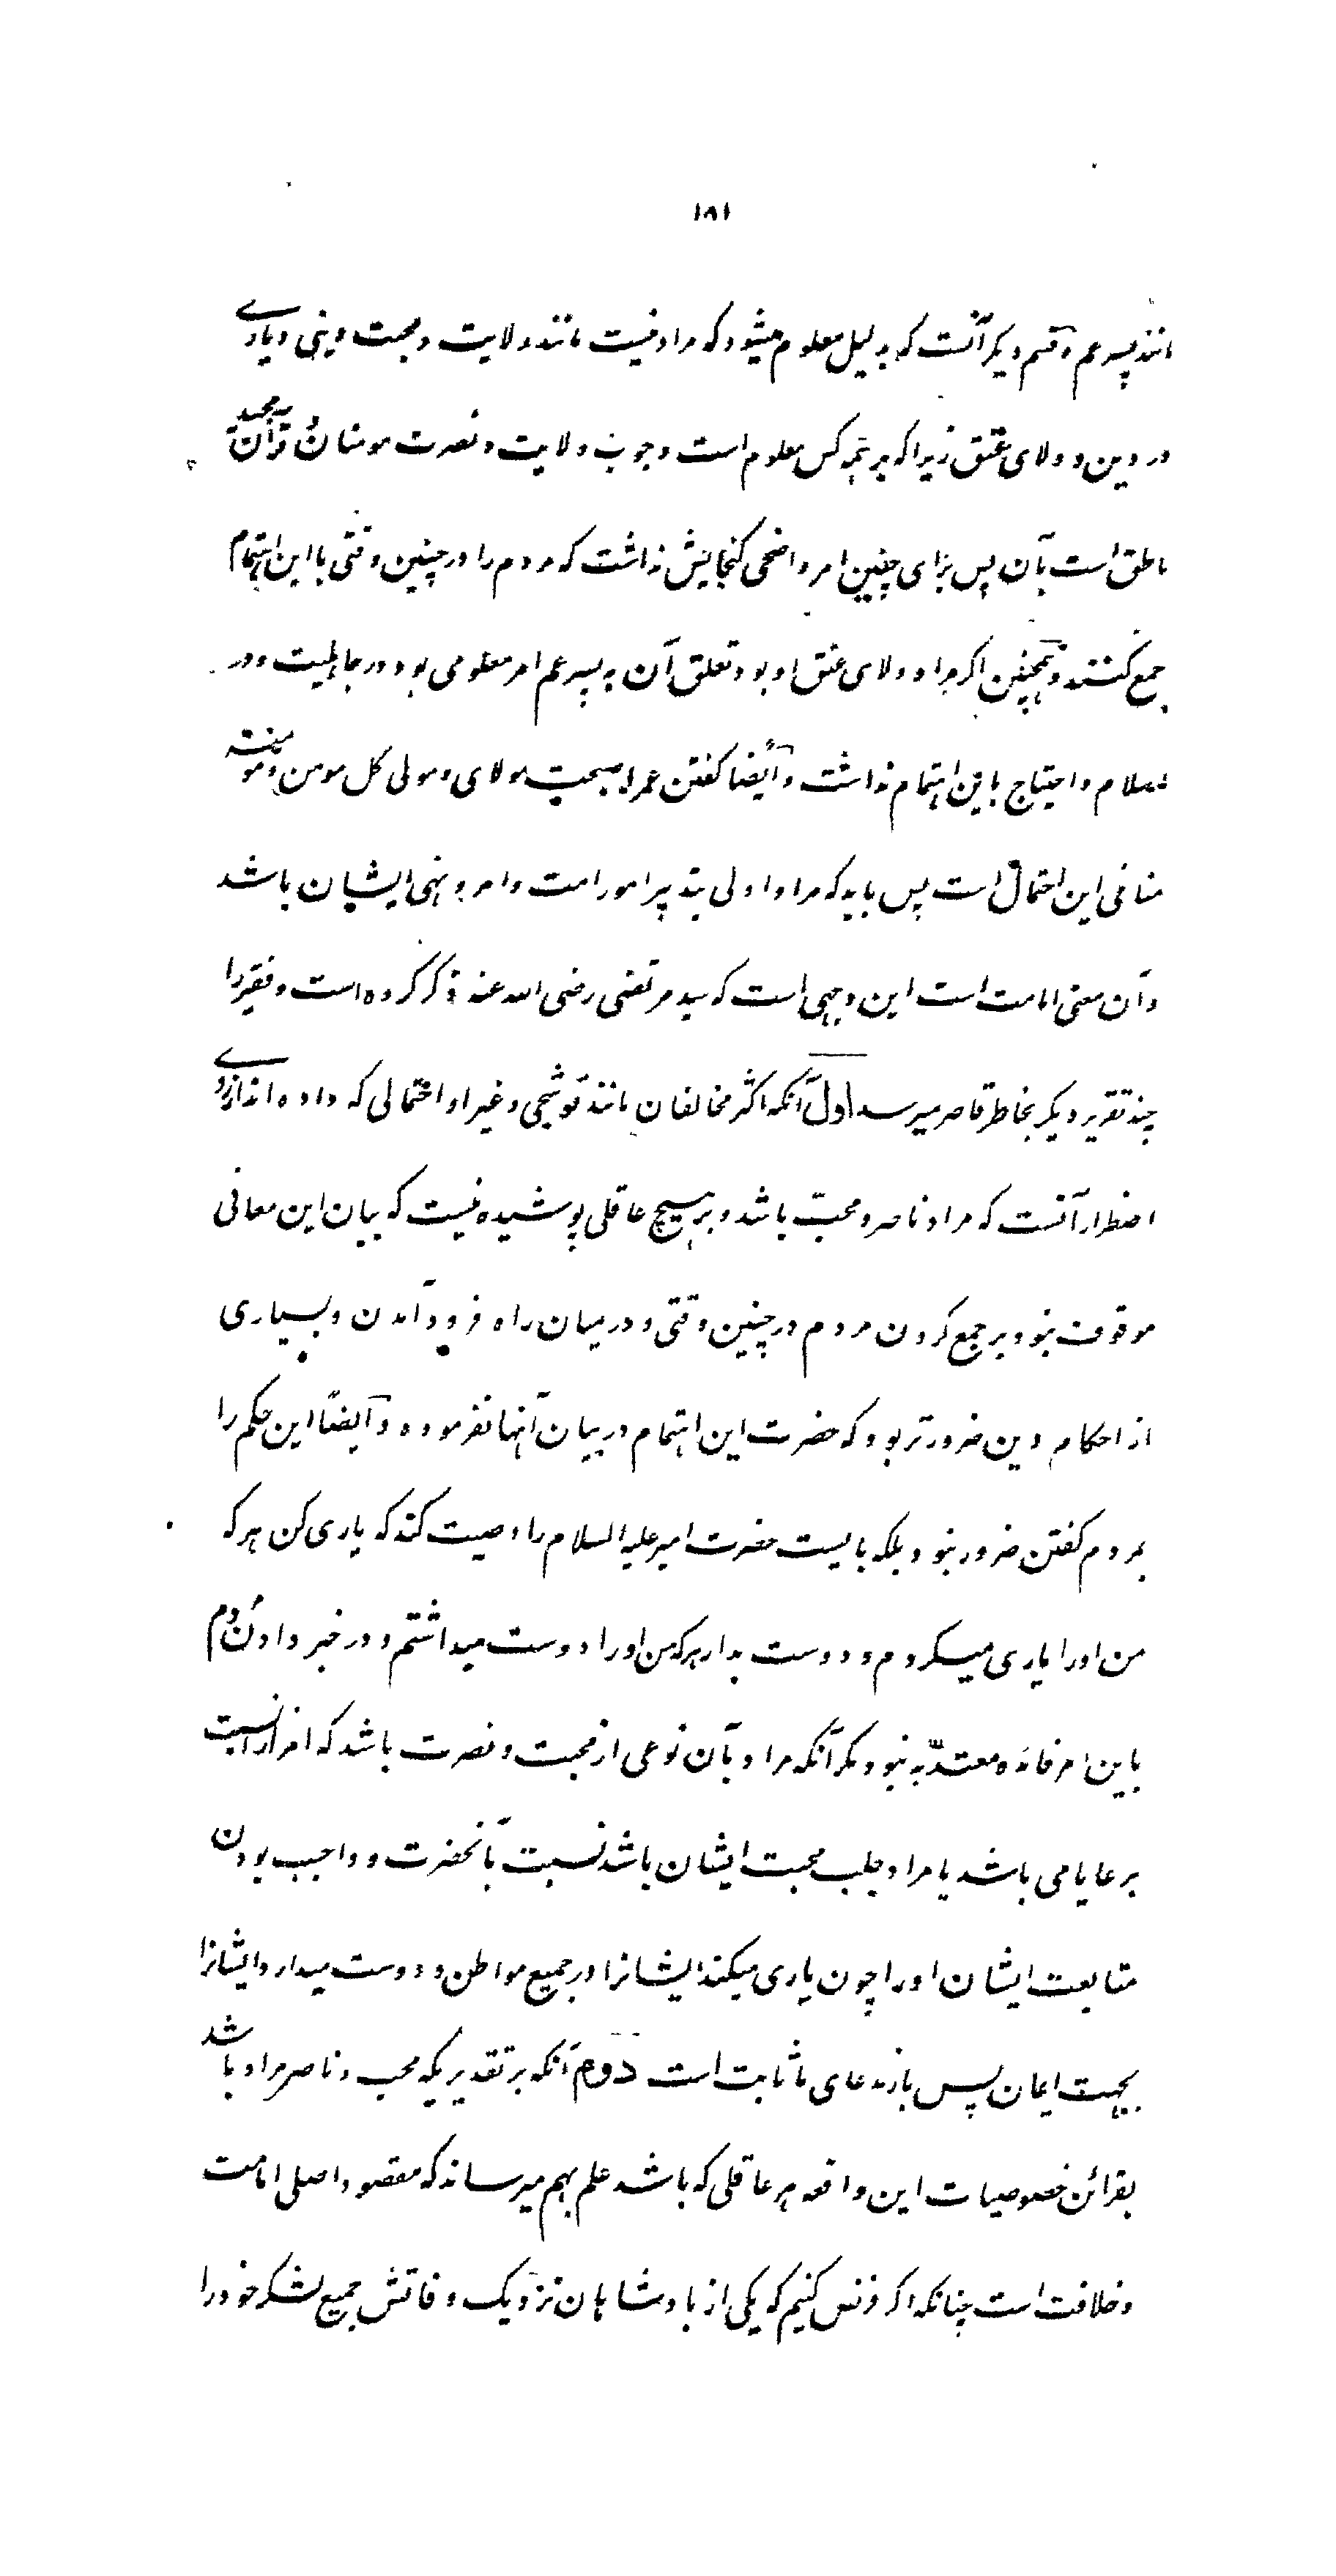 ۱۸۱
مانند پسر عم و قسم دیکر آنست که بدلیل معلوم میشود که مراد نیست مانند ولایت و محبت دینی و یاری
در دین و ولای عتق زیرا که بر همه کس معلوم است وجوب ولایت و نصرت مومنان و قرآن مجید
ناطق است بآن پس برای چنین امر واضحی کنجایش نداشت که مردم را در چنین وقتی با این اهتمام
جمع کنند و همچنین اکر مراد ولای عتق او بود تعلق آن به پسر عم امر معلومی بود در جاهلیت و در
اسلام و احتیاج باین اهتمام نداشت و ایضا کفتن عمر اصبحت مولای و مولی کل مومن و مومنة
منافی این احتمال است پس باید که مراد اولی بتدبیر امور امت و امر و نهی ایشان باشد
و آن معنی امامت است این وجهی است که سید مرتضی رضی الله عنه ذکر کرده است و فقیر را
چند تقریر دیکر بخاطر قاصر میرسد اول آنکه اکثر مخالفان مانند قوشجی و غیر او احتمالی که داده اند از روی
اضطرار آنست که مراد ناصر و محبّ باشد و بر هیچ عاقلی پوشیده نیست که بیان این معانی
موقوف نبود بر جمع کردن مردم در چنین وقتی و در میان راه فرود آمدن و بسیاری
از احکام دین ضرورتر بود که حضرت این اهتمام در بیان آنها نفرموده و ایضاً این حکم را
بمردم کفتن ضرور نبود بلکه بایست حضرت امیر علیه السلام را وصیت کند که یاری کن هر که
من او را یاری میکردم و دوست بدار هر که من او را دوست میداشتم و در خبر دادن مردم
باین امر فائده معتدّ به نبود مکر آنکه مراد بآن نوعی از محبت و نصرت باشد که امرا را نسبت
برعایا می باشد یا مراد جلب محبت ایشان باشد نسبت بآنحضرت و واجب بودن
متابعت ایشان او را چون یاری میکند ایشانرا در جمیع مواطن و دوست میدارد ایشانرا
بجهت ایمان پس باز مدعای ما ثابت است دوم آنکه بر تقدیریکه محب و ناصر مراد باشد
بقرائن خصوصیات این واقعه هر عاقلی که باشد علم بهم میرساند که مقصود اصلی امامت
و خلافت است چنانکه اکر فرض کنیم که یکی از بادشاهان نزدیک وفاتش جمیع لشکر خود را